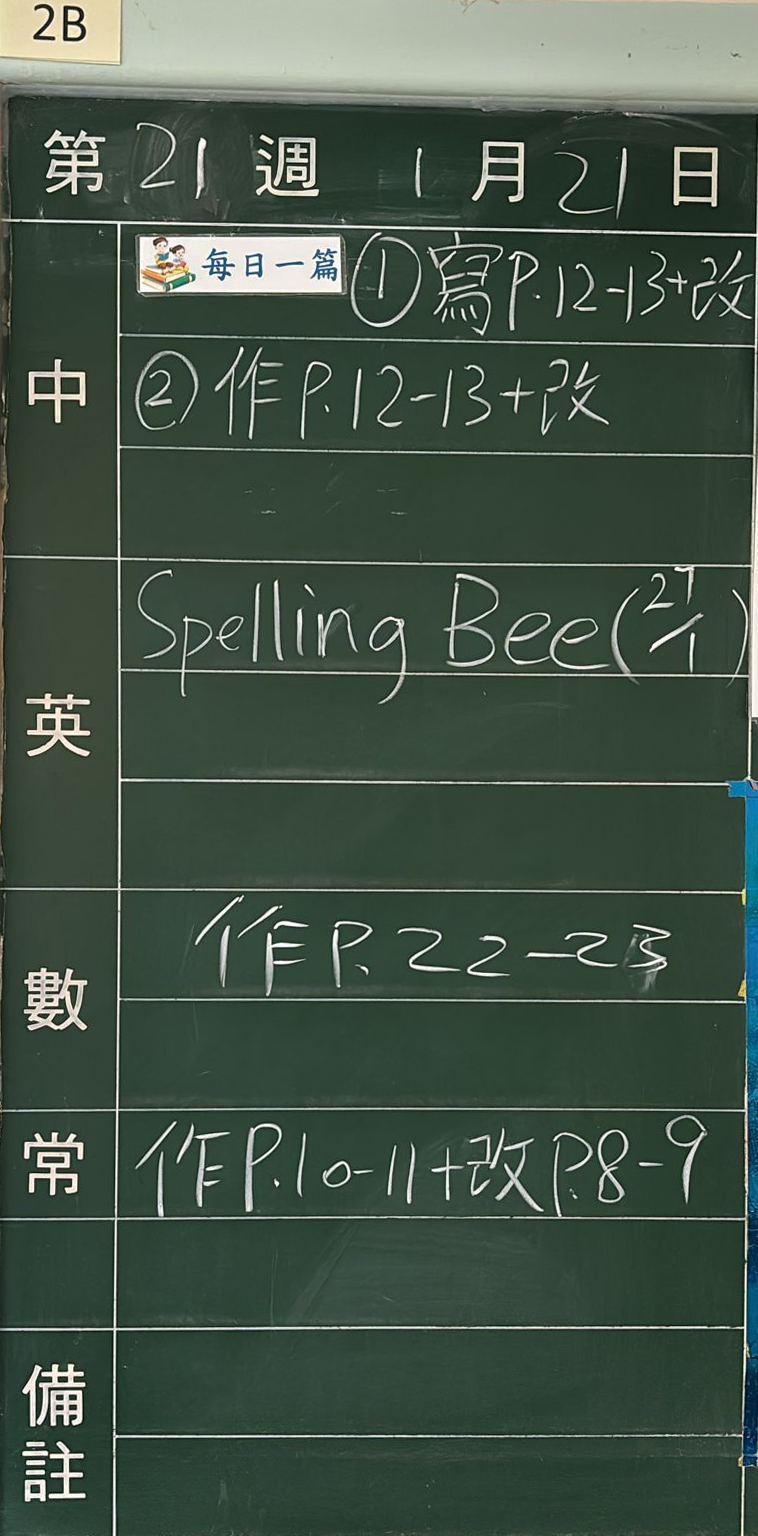 2B
第21週 1月21日
中
每日一篇 ①寫P.12-13+改
②作P.12-13+改
英
Spelling Bee(27/1)
數
作P.22-23
常
作P.10-11+改P.8-9
備註